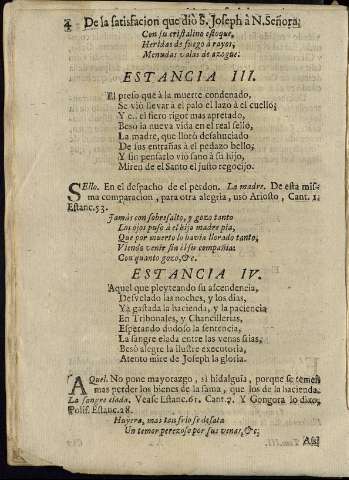 4 De la satisfacion que diò S. Joseph à N. Señora,
Con su cristalino estoque,
Heridas de fuego à rayos,
Menudas valas de azogue.
ESTANCIA III.
El preso que à la muerte condenado,
Se viò llevar à el palo el lazo à el cuello;
Y el fiero rigor mas apretado,
Besò la nueva vida en el real sello,
La madre, que llorò desahuciado
De sus entrañas à el pedazo bello;
Y sin pensarlo viò sano à su hijo,
Miren de el Santo el justo regocijo.
SEllo. En el despacho de el perdon. La madre. De esta mis-
ma comparacion, para otra alegria, uso Ariosto, Cant. 1.
Estanc. 53.
Jamás con sobresalto, y gozo tanto
Los ojos puso à el hijo madre pia,
Que por muerto lo havia llorado tanto,
Viendo venir sin èl su compañia:
Con quanto gozo, &c.
ESTANCIA IV.
Aquel que pleyteando su ascendencia,
Desvelado las noches, y los dias,
Ya gastada la hacienda, y la paciencia
En Tribunales, y Chancillerias,
Esperando dudoso la sentencia,
La sangre elada entre las venas frias,
Besò alegre la ilustre executoria,
Atento mire de Joseph la gloria.
AQuel. No pone mayorazgo, si hidalguia, porque se temen
mas perder los bienes de la fama, que los de la hacienda.
La sangre elada. Vease Estanc. 61. Cant. 7. Y Gongora lo dixo,
Polif. Estanc. 28.
Huyera, mas tan frio se desata
Un temor perezoso por sus venas, &c;